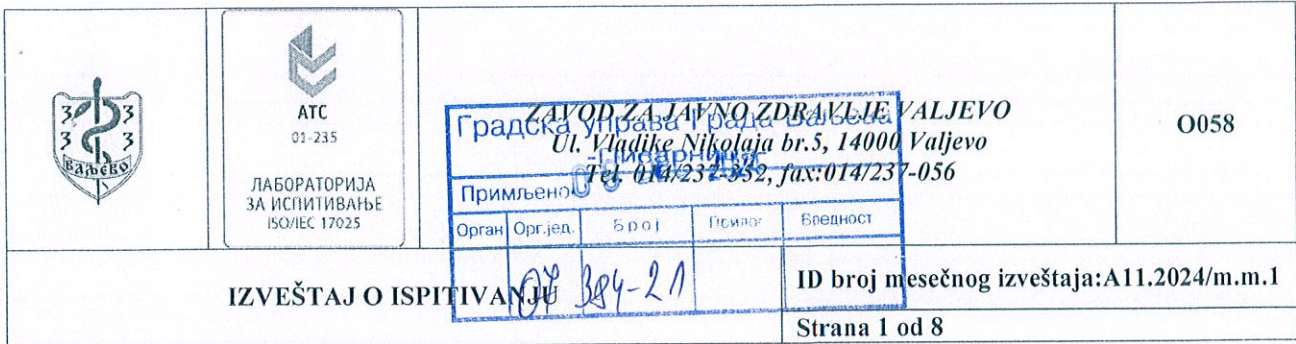 З З
З З
ВАЉЕВО
АТС
01-235
ЛАБОРАТОРИЈА
ЗА ИСПИТИВАЊЕ
ISO/IEC 17025
ZAVOD ZA JAVNO ZDRAVLJE VALJEVO
Ul. Vladike Nikolaja br.5, 14000 Valjevo
Tel. 014/237-352, fax:014/237-056
O058
Градска управа Града Ваљева
-Писарница-
Примљено
Орган Орг.јед. Број Прилог Вредност
07 384-21
IZVEŠTAJ O ISPITIVANJU
ID broj mesečnog izveštaja:A11.2024/m.m.1
Strana 1 od 8